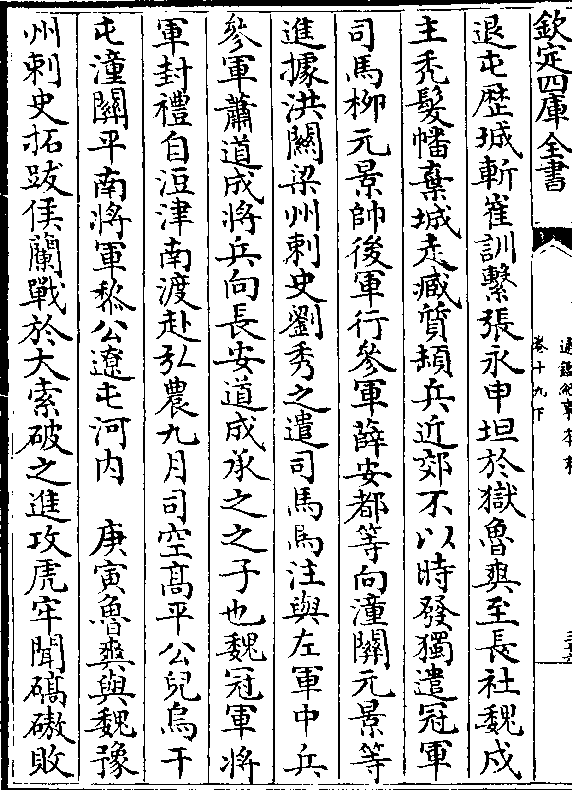 欽定四庫全書
通鑑紀事本末
卷十九下
退屯歷城斬崔訓繫張永申坦於獄魯爽至長社魏戍
主禿髮幡棄城走臧質頓兵近郊不以時發獨遣冠軍
司馬柳元景帥後軍行參軍薛安都等向潼關元景等
進據洪關梁州刺史劉秀之遣司馬馬注與左軍中兵
參軍蕭道成將兵向長安道成承之之子也魏冠軍將
軍封禮自洹津南渡赴弘農九月司空高平公兒烏干
屯潼關平南將軍黎公遼屯河內　庚寅魯爽與魏豫
州刺史拓跋僕蘭戰於大索破之進攻虎牢聞碻磝敗